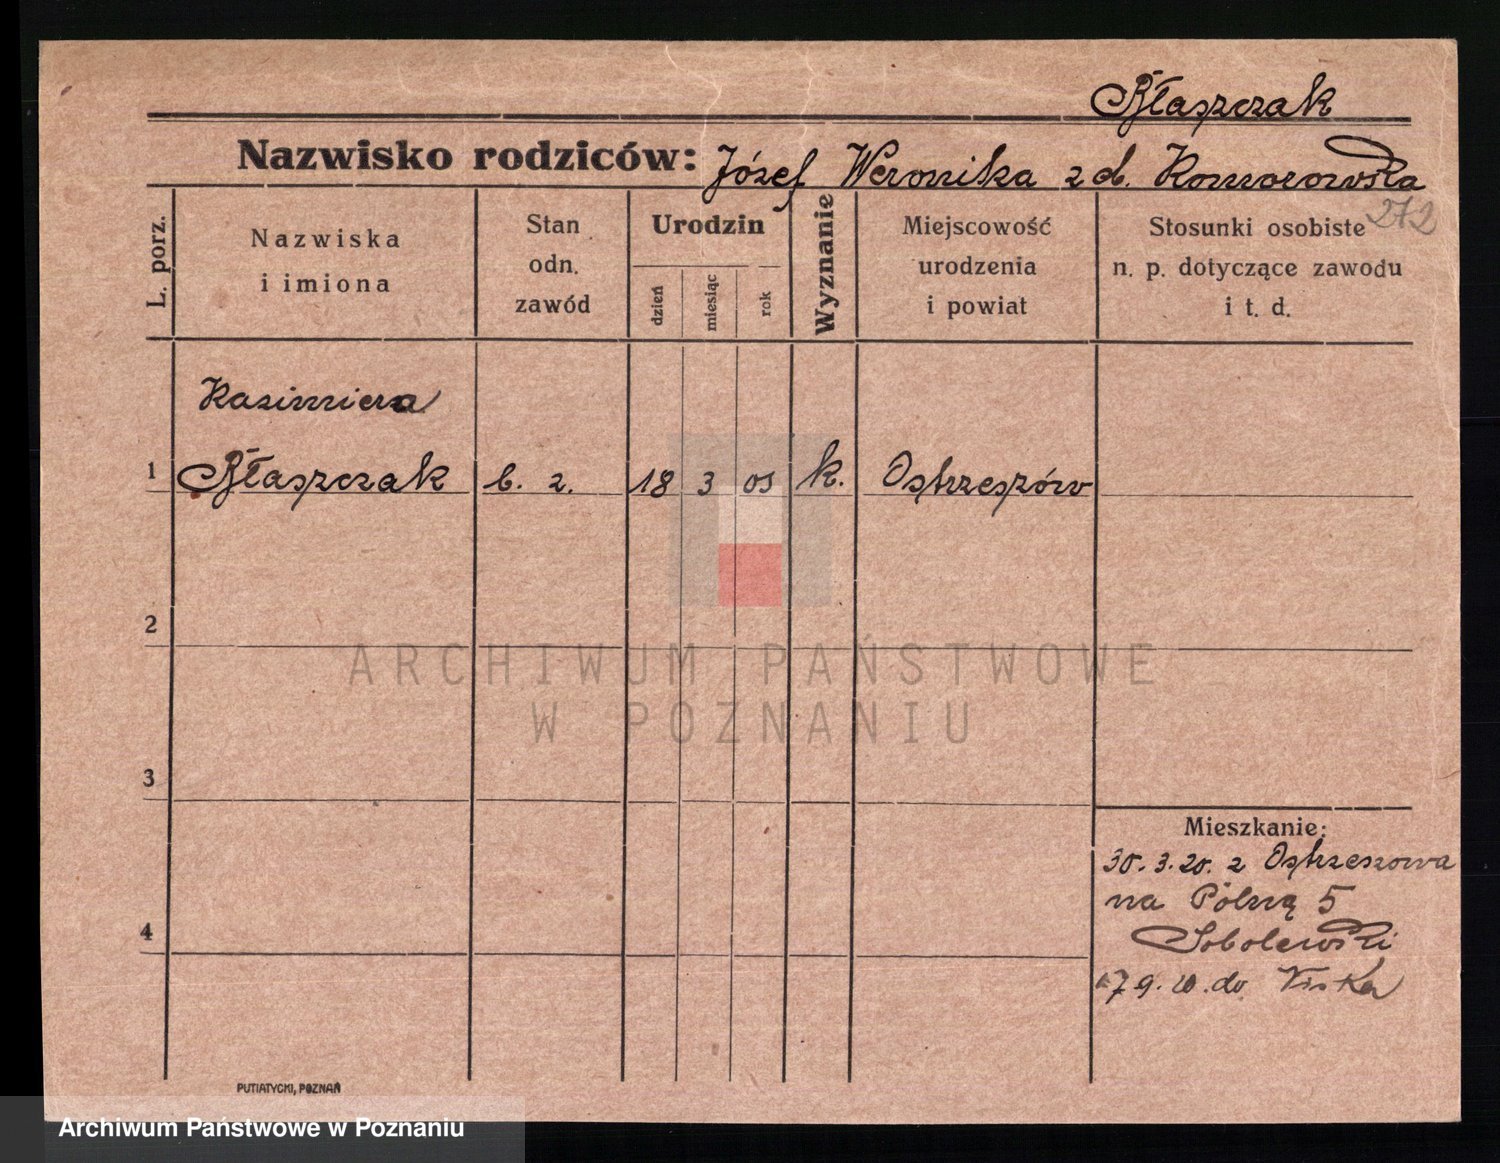 Błaszczak
Nazwisko rodziców: Józef Weronika z d. Komorowska
272
L. porz.
Nazwiska
i imiona
Stan
odn.
zawód
Urodzin
dzień
miesiąc
rok
Wyznanie
Miejscowość
urodzenia
i powiat
Stosunki osobiste
n. p. dotyczące zawodu
i t. d.
Kazimiera
1 Błaszczak b. z. 18 3 05 k. Ostrzeszów
2
3
4
Mieszkanie:
30.3.20. z Ostrzeszowa
na Polną 5
Sobolewski
7 9. 20. do
PUTIATYCKI, POZNAŃ
ARCHIWUM PAŃSTWOWE
W POZNANIU
Archiwum Państwowe w Poznaniu